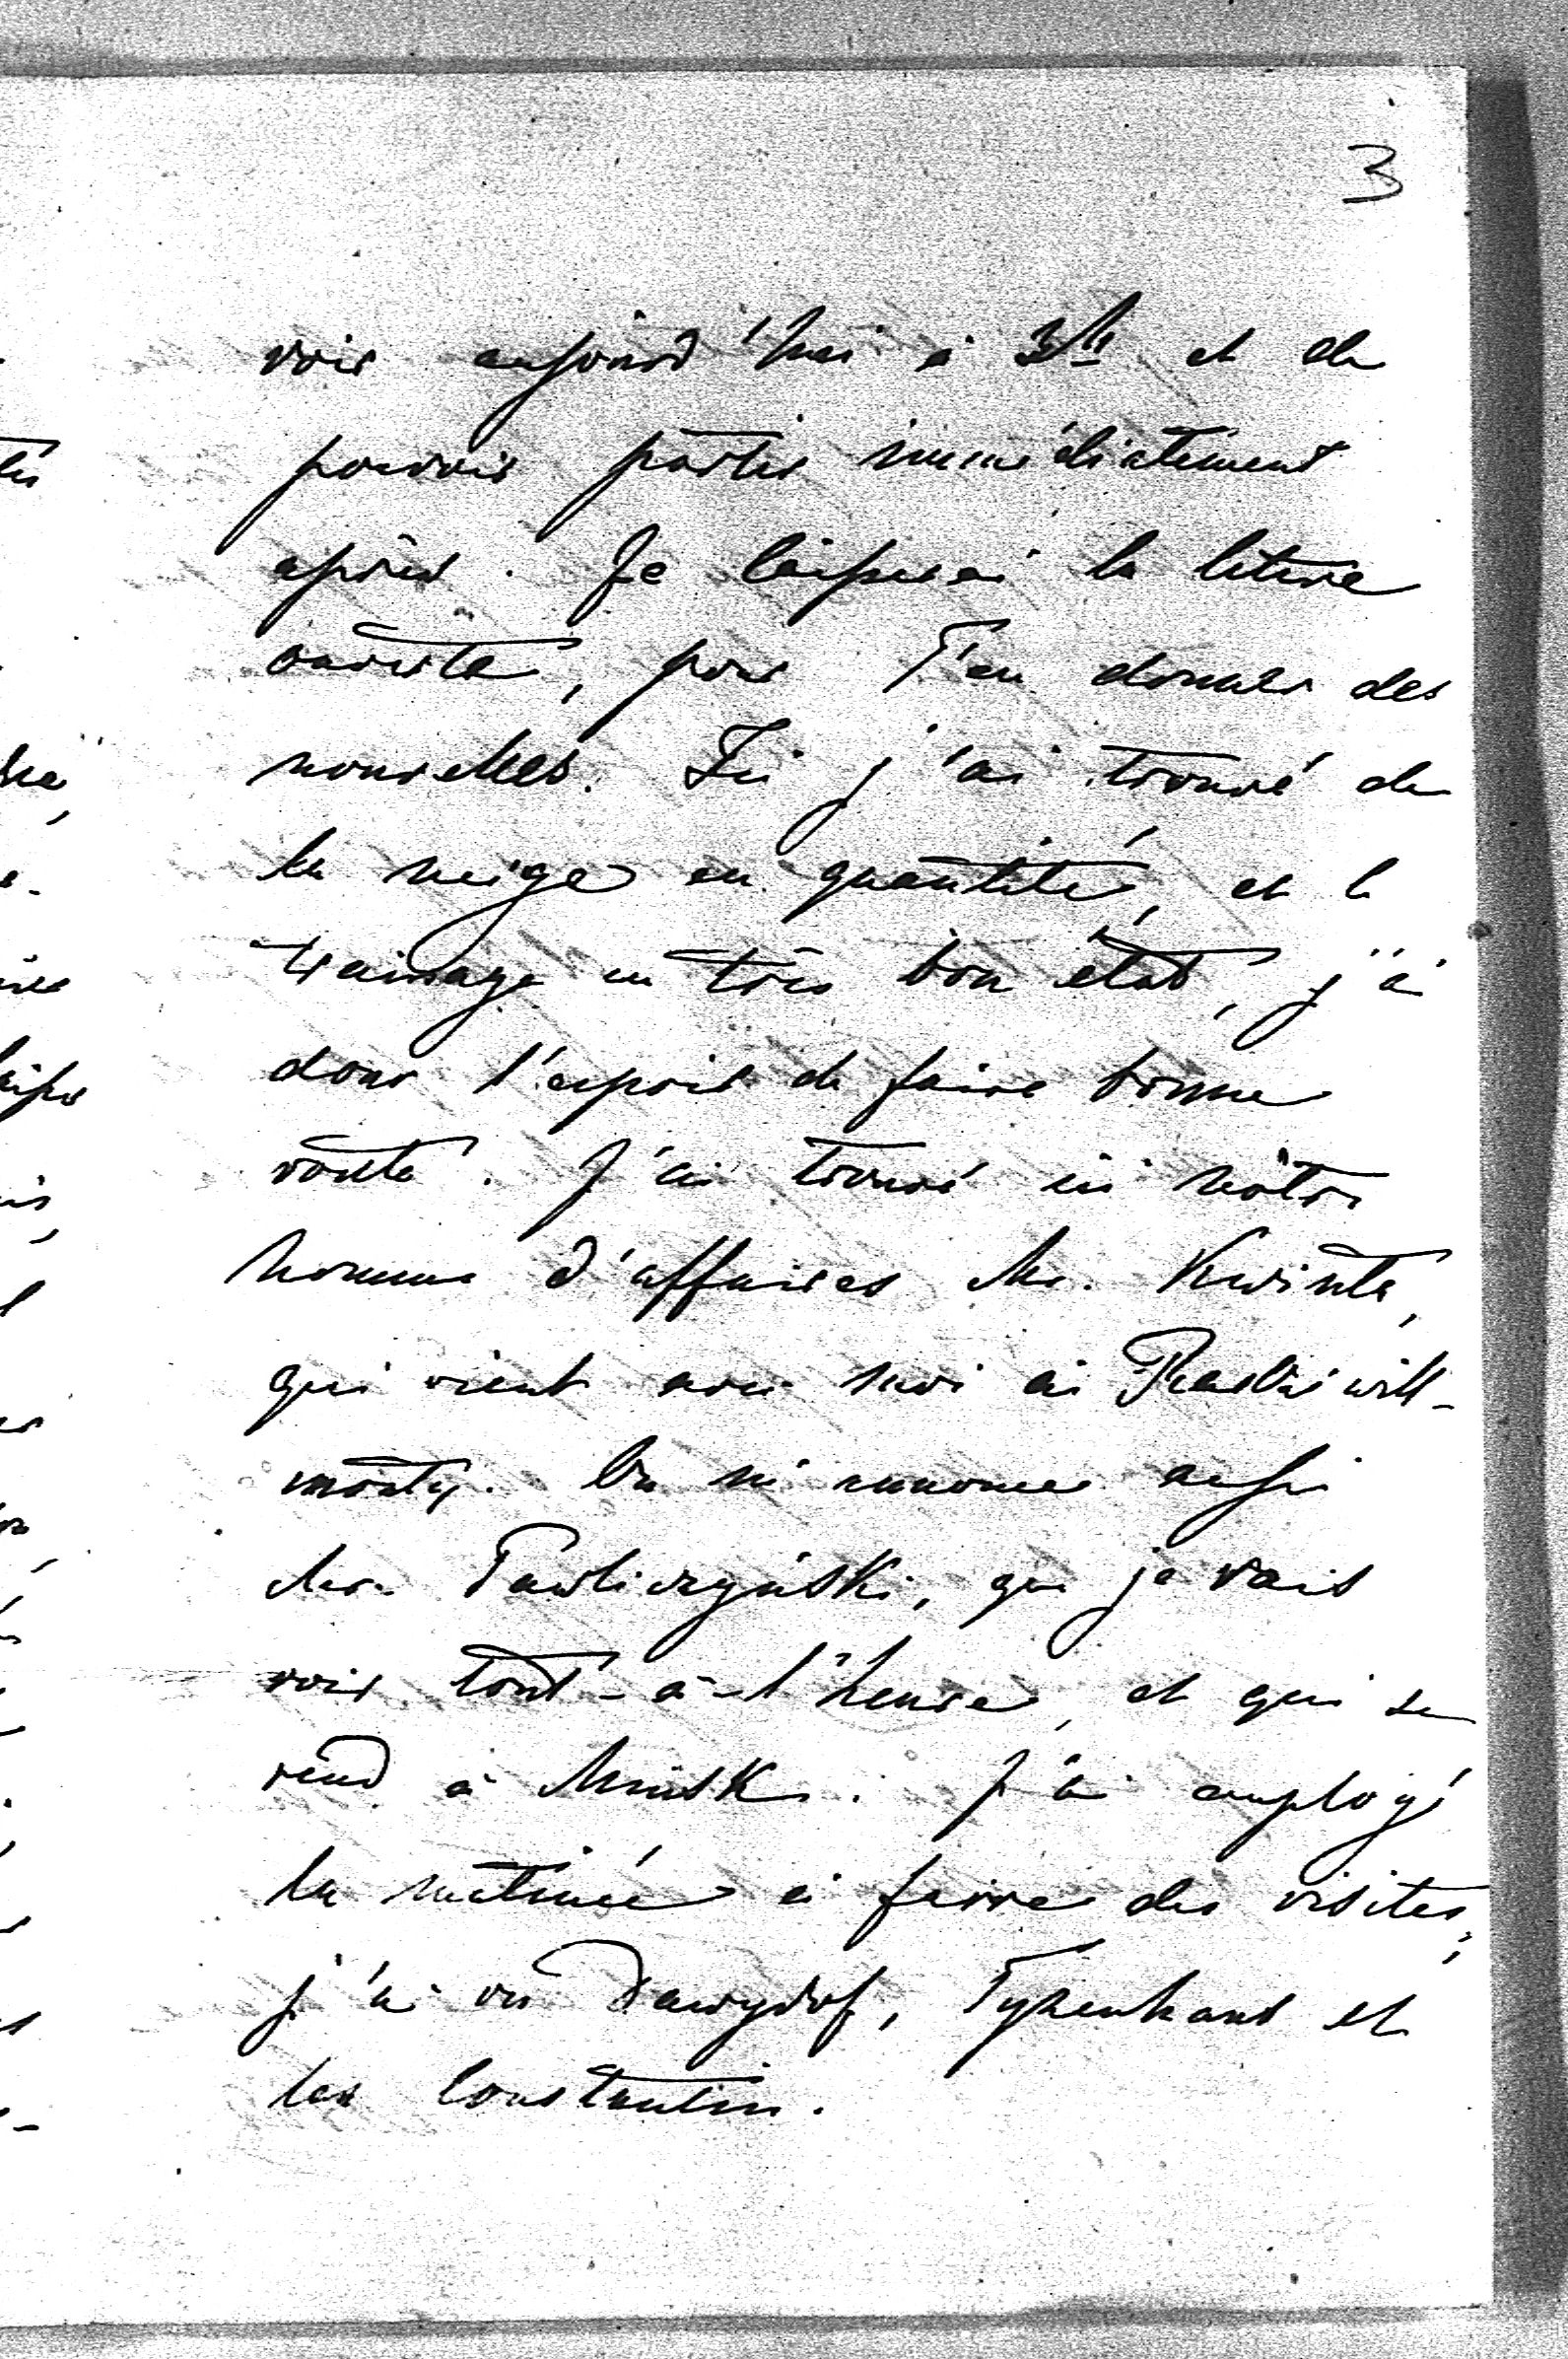 3
voir aujourd'hui à 3h et de
pouvoir partir immédiatement
après. Je laisserai la lettre
ouverte, pour T'en donner des
nouvelles. Ici j'ai trouvé de
la neige en quantité, et le
trainage en très bon état, j'ai
donc l'espoir de faire bonne
route. J'ai trouvé ici nôtre
homme d'affaires Mr. Kwinta,
qui vient avec moi à Radziwill-
monty. On m'annonce aussi
Mr. Pawliczyński, que je vais
voir tout-à-l'heure, et qui se
rend à Minsk. J'ai employé
la matinée à faire des visites;
j'ai vu Dawydof, Tyzenhaus et
les Constantin.